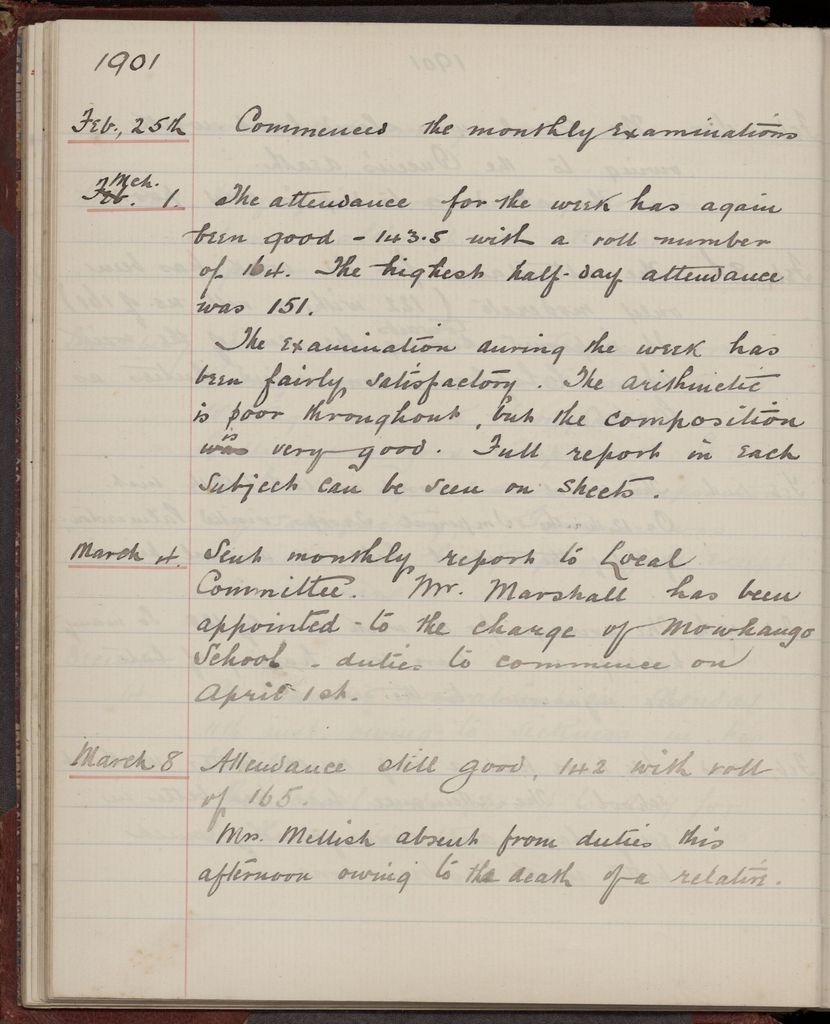 1901
Feb., 25th Commenced the monthly Examinations
Mch.
Feb. 1. The attendance for the week has again
been good - 143.5 with a roll number
of 164. The highest half-day attendance
was 151.
The Examination during the week has
been fairly satisfactory. The arithmetic
is poor throughout, but the composition
is
was very good. Full report in Each
Subject can be seen on Sheets.
March 4. Sent monthly report to Local
Committee. Mr. Marshall has been
appointed to the charge of Mowhango
School - duties to commence on
April 1st.
March 8 Attendance still good, 142 with roll
of 165.
Mrs. Mellish absent from duties this
afternoon owing to the death of a relative.